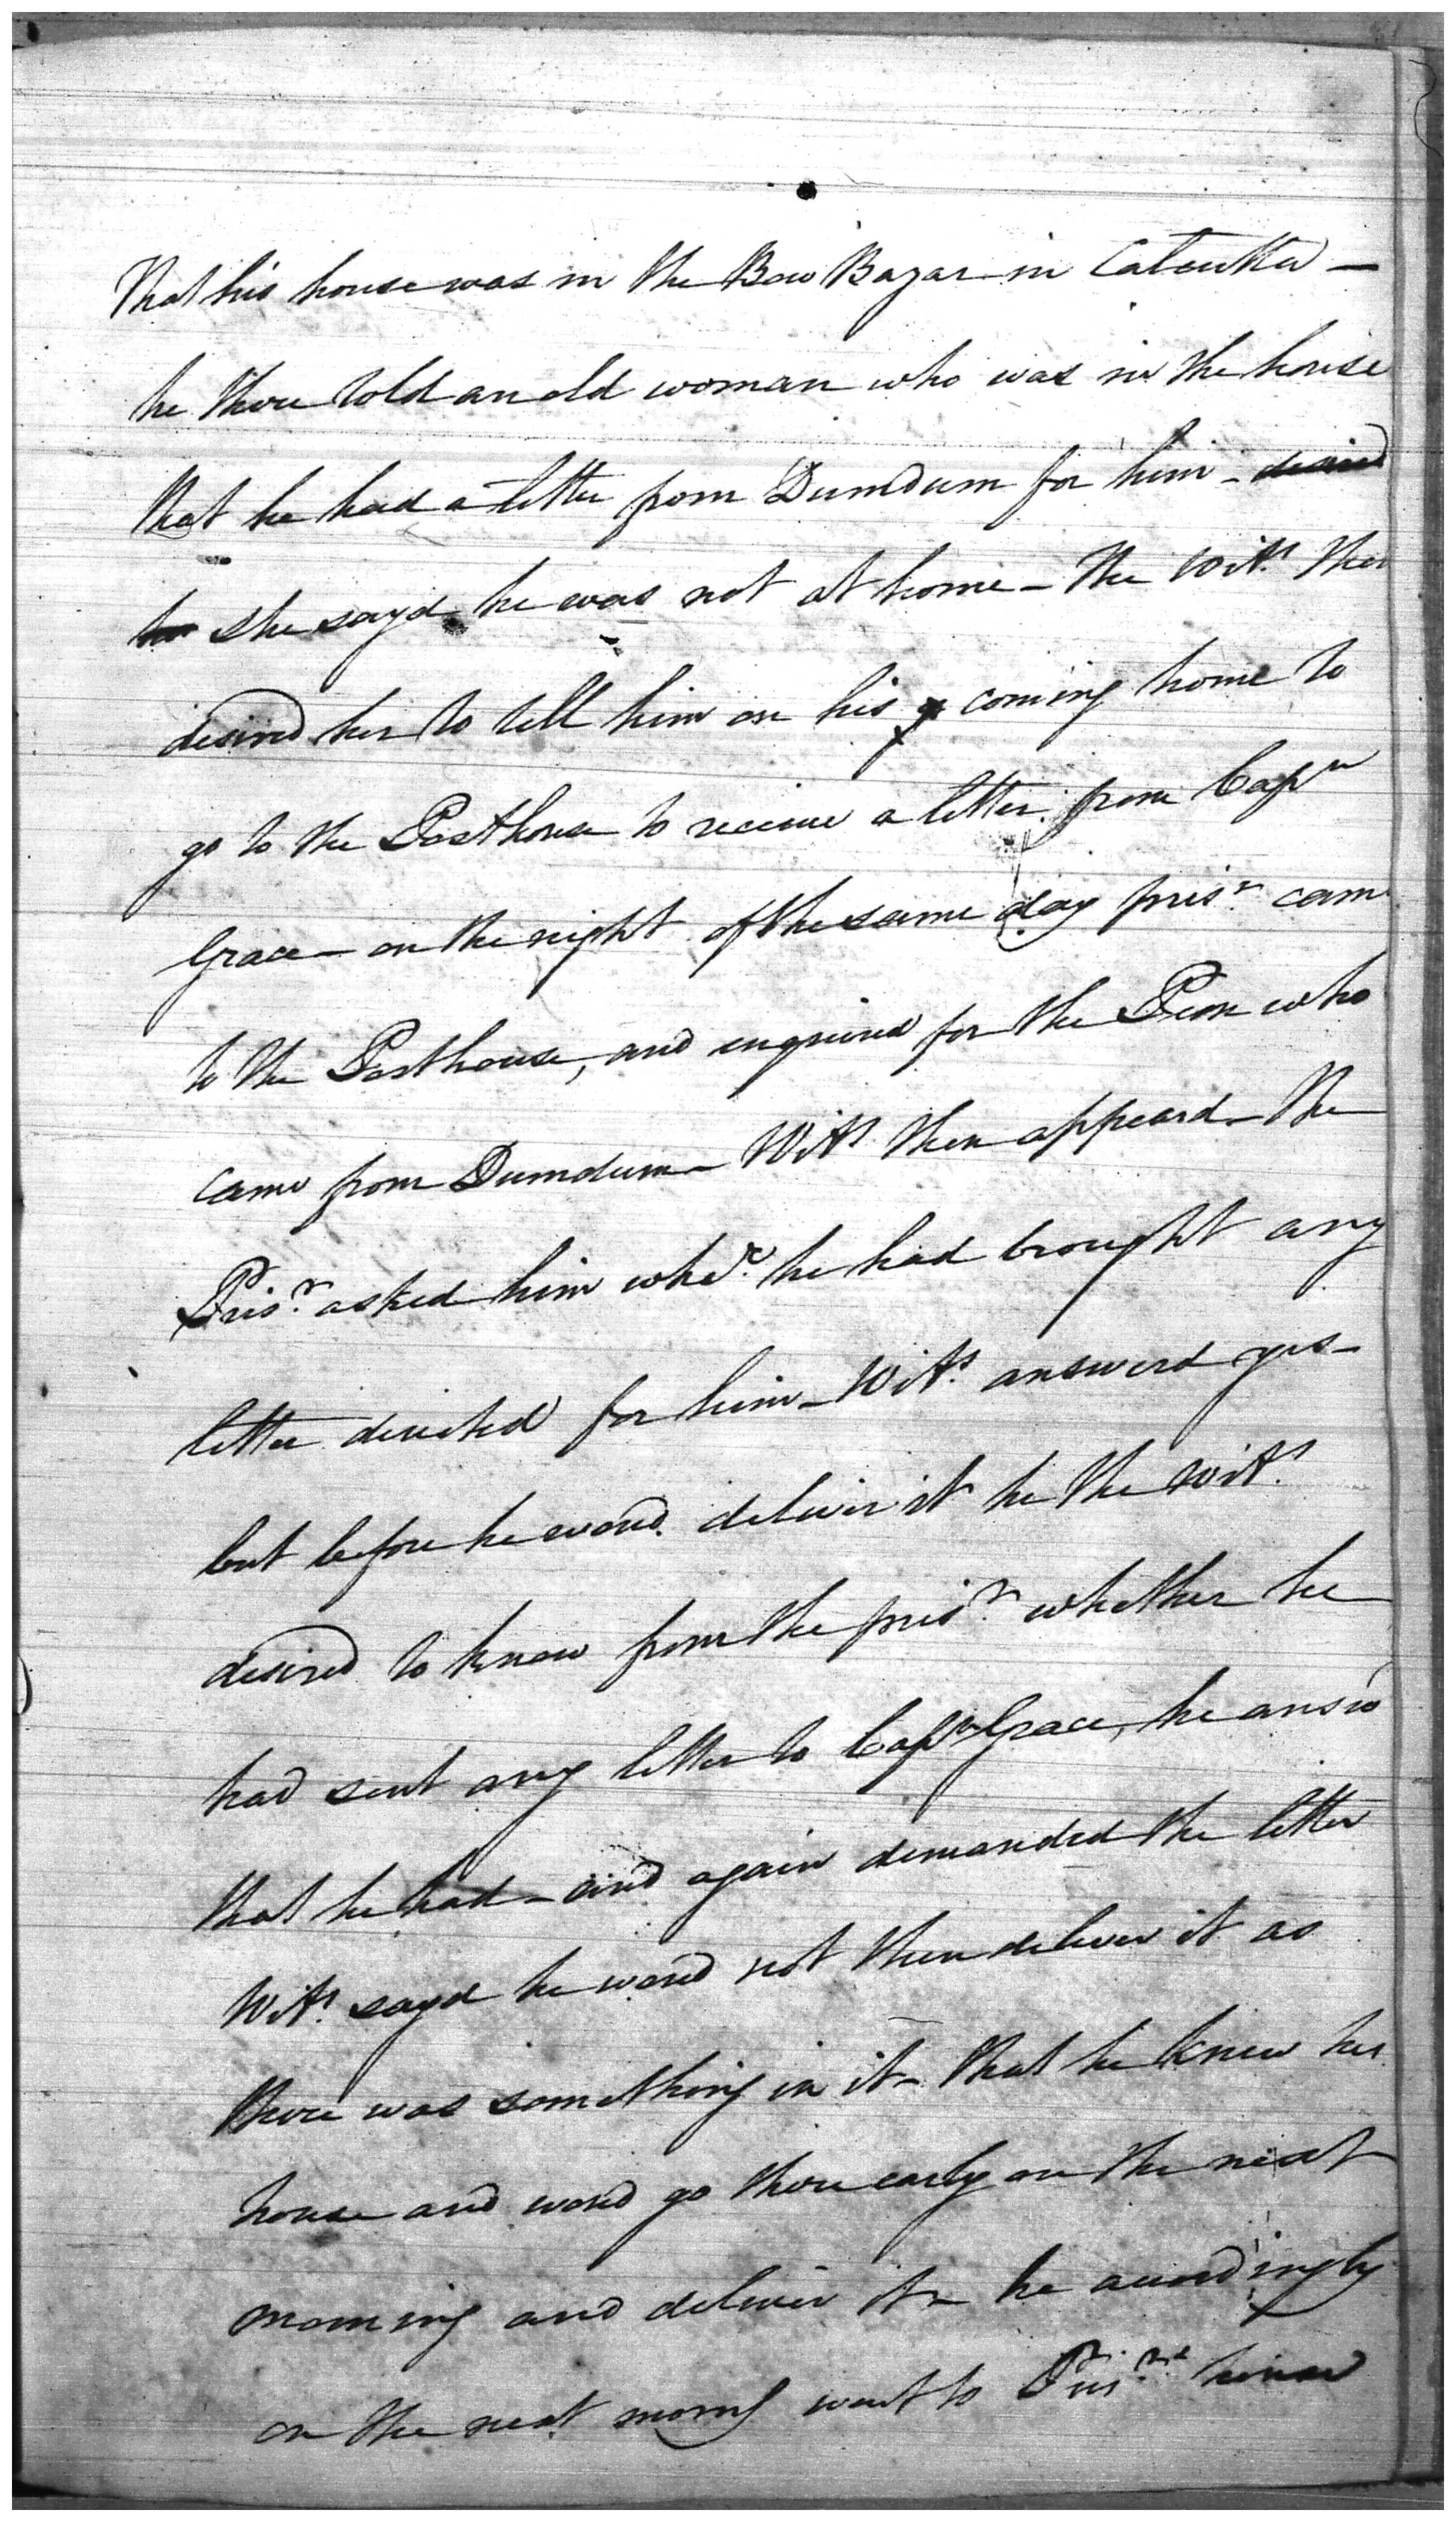 That his house was in the Bow Bazar in Calcutta —
he there told an old woman who was in the house
that he had a letter from Dumdum for him - desired
her she sayd he was not at home - the Wits. then
desired her to tell him on his coming home to
go to the Posthouse to receive a letter from Capn
Grace - on the night of the same day prisr came
to the Posthouse, and enquired for the Peon who
came from Dumdum - Wits. then appeard - the
Prisr. asked him wher. he had brought any
letter directed for him - Wits. answerd yes -
but before he woud. deliver it he the Wits.
desired to know from the prisr. whether he
had sent any letter to Capn Grace, he answ
that he had - and again demanded the letter
Wits. sayd he woud not then deliver it as
there was something in it - that he knew his
house and woud go there early on the next
morning and deliver it - he accordingly
on the next morng went to Prisrs. house